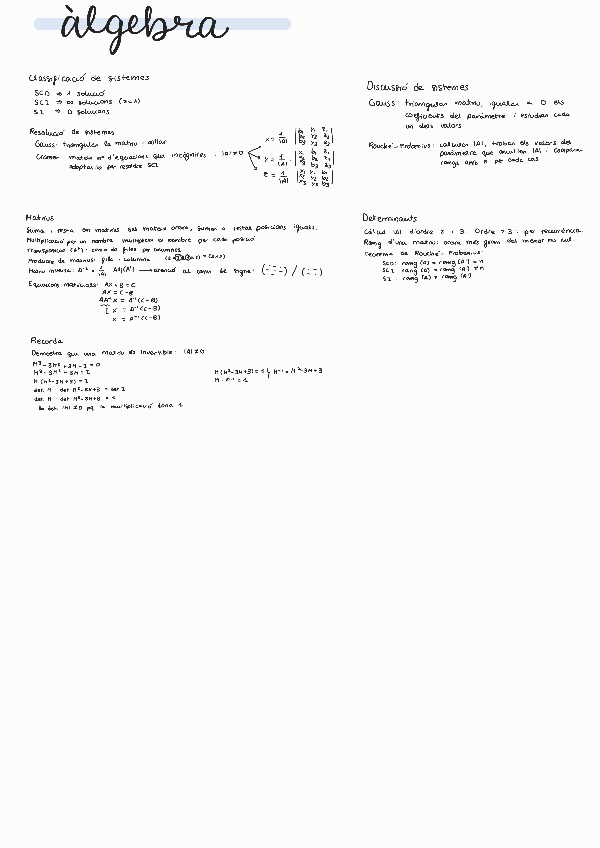 àlgebra
Classificació de sistemes
SCD → 1 solució
SCI → ∞ solucions (z=λ)
SI → 0 solucions
Discussió de sistemes
Gauss: triangular matriu, igualar a 0 els
coeficients del paràmetre i estudiar cada
un dels valors
Rouché-Frobenius: calcular |A|, trobar els valors del
paràmetre que anul·len |A| i comparar
rangs amb n per cada cas
Resolució de sistemes
Gauss: triangular la matriu i aïllar
Cramer: mateix nº d'equacions que incògnites i |A| ≠ 0
adaptar-lo per resoldre SCI
x = 1/|A|
y = 1/|A|
z = 1/|A|
Matrius
Suma i resta en matrius del mateix ordre, sumar o restar posicions iguals.
Multiplicació per un nombre: multiplicar el nombre per cada posició
Transposició (Aᵗ): canvi de files per columnes
Producte de matrius: fila · columna
Matriu inversa: A⁻¹ = 1/|A| · Adj(Aᵗ) → atenció al canvi de signe:
Equacions matricials: AX + B = C
AX = C - B
AA⁻¹ X = A⁻¹ (C-B)
I X = A⁻¹ (C-B)
X = A⁻¹ (C-B)
Determinants
Càlcul |A| d'ordre 2 i 3. Ordre > 3: per recurrència.
Rang d'una matriu: ordre més gran del menor no nul.
Teorema de Rouché-Frobenius:
SCD: rang (A) = rang (A') = n
SCI: rang (A) = rang (A') ≠ n
SI: rang (A) ≠ rang (A')
Recorda
Demostra que una matriu és invertible: |A| ≠ 0
M (M²-3M+3) = I
det M · det M²-3M+3 = det I
det M · det M²-3M+3 = 1
M (M²-3M+3) = I
M · M⁻¹ = I
M⁻¹ = M²-3M+3